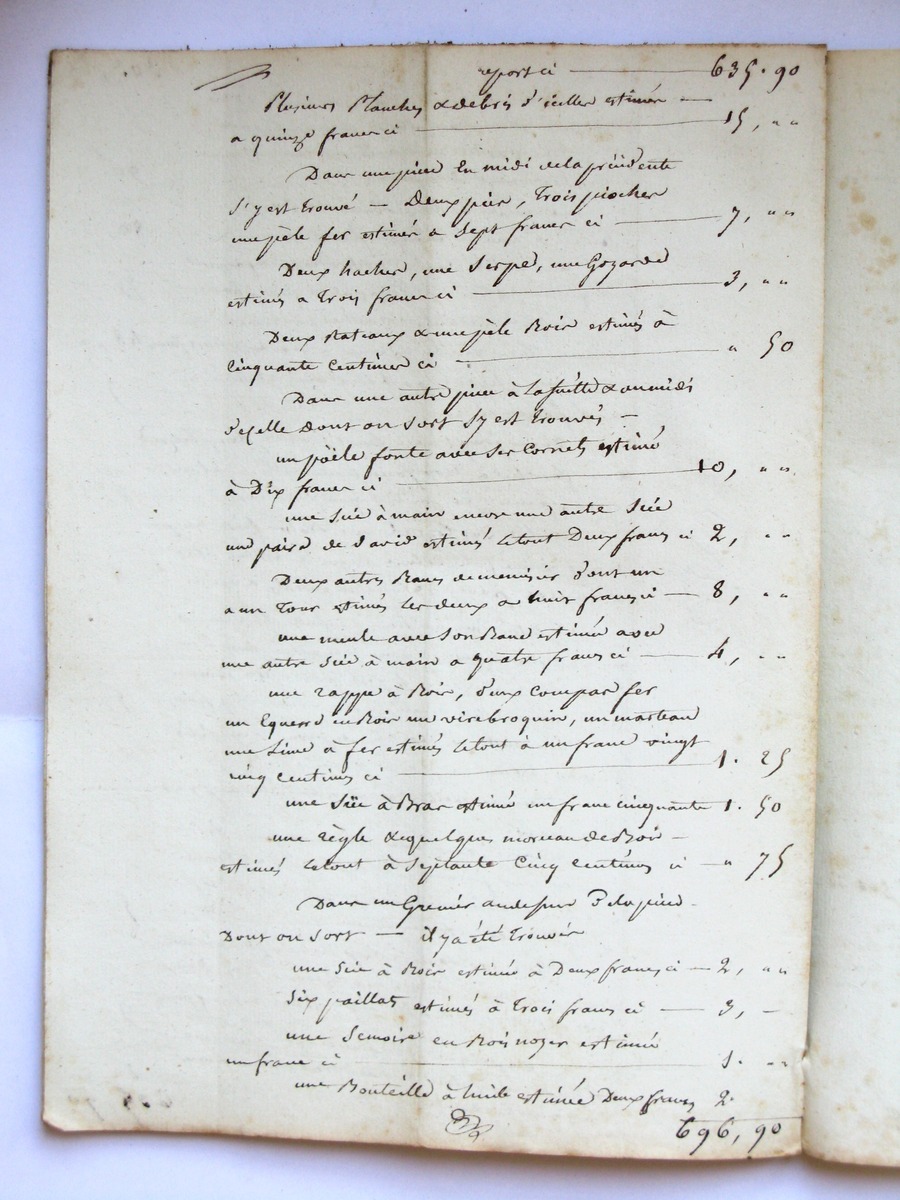 report ci — 635. 90
Plusieurs Planches & debris d'icelles estimés —
a quinze francs ci — 15, " "
Dans une piece En midi de la précédente
s'y est trouvé — Deux pics, Trois pioches
une pèle fer estimés a Sept francs ci — 7, " "
Deux haches, une Serpe, une Gozarde
estimés a Trois francs ci — 3, " "
Deux Rateaux & une pèle Bois estimés à
cinquante Centimes ci — " 50
Dans une autre piece à la suitte & au midi
d'icelle Dont on sort s'y est Trouvés —
un poële fonte avec ses Cornets estimé
à Dix francs ci — 10, " "
une Sçie à main encore une autre Scie
une paire de david estimés le tout Deux francs ci 2, " "
Deux autres Bancs de menuisier d'ont un
a un Tour estimés les deux a huit francs ci — 8, " "
une meule avec son Banc estimée avec
une autre Sçie à main a quatre francs ci — 4, " "
une rappe à Bois, d'eux compas fer
un Equerre en Bois un virebroquin, un marteau
une Lime à fer estimés le tout à un franc vingt
cinq centimes ci — 1. 25
une Sçie à Bras estimée un franc cinquante 1. 50
une règle & quelques morceau de Bois —
estimés le tout à Septante Cinq centimes ci — " 75
Dans un Grenier au dessus de la piece
Dont on sort — il y a été Trouvés
une Scie à Bois estimée à Deux francs ci — 2, " "
Six paillats estimés à Trois francs ci — 3, —
une Semoire en Bois noyer estimé
un franc ci — 1. " "
une Bouteille à huile estimée Deux francs 2.
696, 90